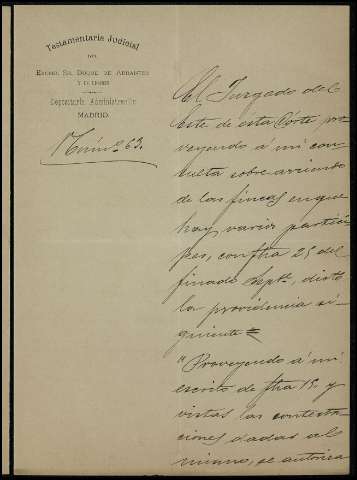 Testamentaría Judicial
DEL
EXCMO. SR. DUQUE DE ABRANTES
Depositaría Administración
MADRID.
Núm.º 63.
El Juzgado del
Este de esta Córte pro-
veyendo á mi con-
sulta sobre arriendo
de las fincas en que
hay varios partíci-
pes, con fha 25 del
finado Sepbre, dictó
la providencia si-
guiente =
"Proveyendo á mi
escrito de fha 15 y
vistas las contesta-
ciones dadas al
mismo, se autoriza